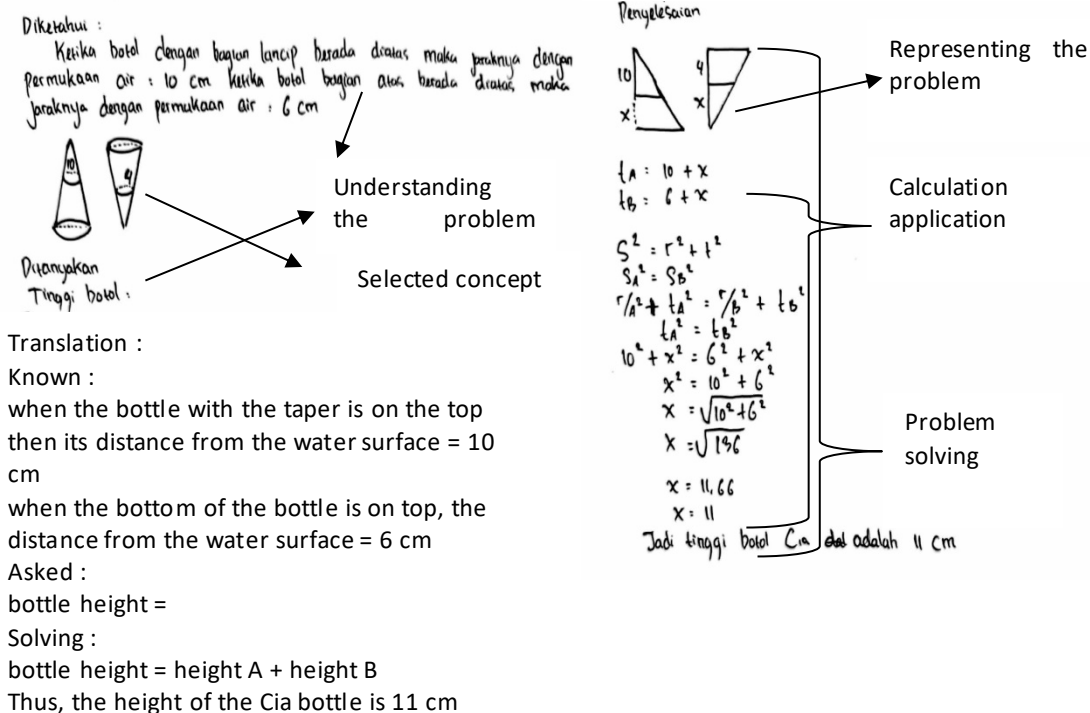 Diketahui :
Ketika botol dengan bagian lancip berada diatas maka jaraknya dengan
permukaan air : 10 cm ketika botol bagian atas berada diatas maka
jaraknya dengan permukaan air : 6 cm
10
4
Ditanyakan
Tinggi botol :
Understanding
the problem
Selected concept
Translation :
Known :
when the bottle with the taper is on the top
then its distance from the water surface = 10
cm
when the bottom of the bottle is on top, the
distance from the water surface = 6 cm
Asked :
bottle height =
Solving :
bottle height = height A + height B
Thus, the height of the Cia bottle is 11 cm
Penyelesaian
10
x
4
x
tA : 10 + x
tB : 6 + x
S² = r² + t²
SA² = SB²
rA² + tA² = rB² + tB²
tA² = tB²
10² + x² = 6² + x²
x² = 10² + 6²
x = √10²+6²
x = √136
x = 11,66
x = 11
Jadi tinggi botol Cia adalah 11 cm
Representing the
problem
Calculation
application
Problem
solving